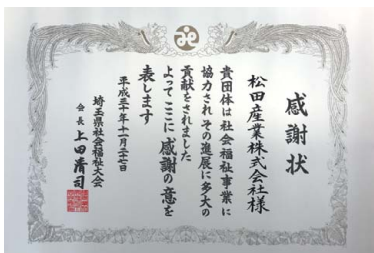 感謝状
松田産業株式会社様
貴団体は社会福祉事業に
協力されその進展に多大の
貢献をされました
よってここに感謝の意を
表します
平成三十年十一月二十七日
埼玉県社会福祉大会
会長 上田清司